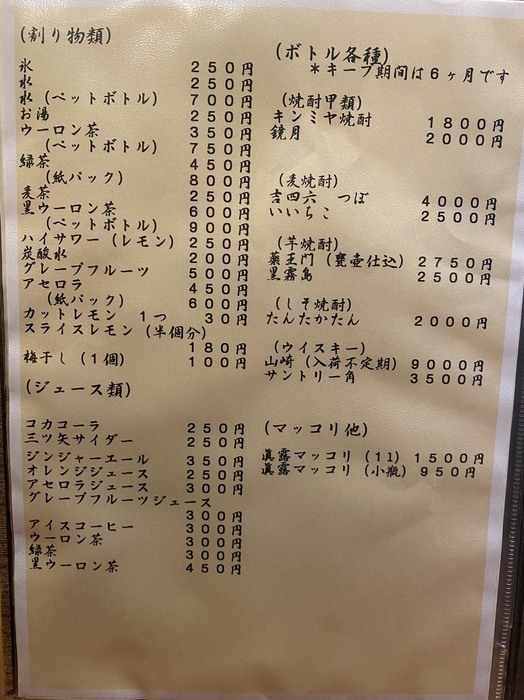 (割り物類)
氷 250円
水 250円
水 (ペットボトル) 700円
お湯 250円
ウーロン茶 350円
(ペットボトル) 750円
緑茶 450円
(紙パック) 800円
麦茶 250円
黒ウーロン茶 600円
(ペットボトル) 900円
ハイサワー (レモン) 250円
炭酸水 200円
グレープフルーツ 500円
アセロラ 450円
(紙パック) 600円
カットレモン 1つ 30円
スライスレモン (半個分)
180円
梅干し (1個) 100円
(ジュース類)
コカコーラ 250円
三ツ矢サイダー 250円
ジンジャーエール 350円
オレンジジュース 250円
アセロラジュース 300円
グレープフルーツジュース
300円
アイスコーヒー 300円
ウーロン茶 300円
緑茶 300円
黒ウーロン茶 450円
(ボトル各種)
*キープ期間は6ヶ月です
(焼酎甲類)
キンミヤ焼酎 1800円
鏡月 2000円
(麦焼酎)
吉四六 つぼ 4000円
いいちこ 2500円
(芋焼酎)
薬王門 (甕壷仕込) 2750円
黒霧島 2500円
(しそ焼酎)
たんたかたん 2000円
(ウイスキー)
山崎 (入荷不定期) 9000円
サントリー角 3500円
(マッコリ他)
眞露マッコリ (1l) 1500円
眞露マッコリ (小瓶) 950円